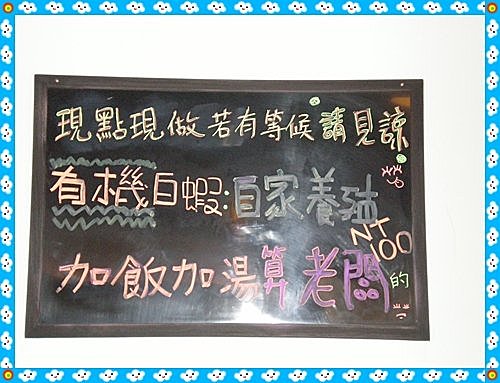 現點現做若有等候請見諒
有機白蝦:自家養殖
NT100
加飯加湯算老闆的